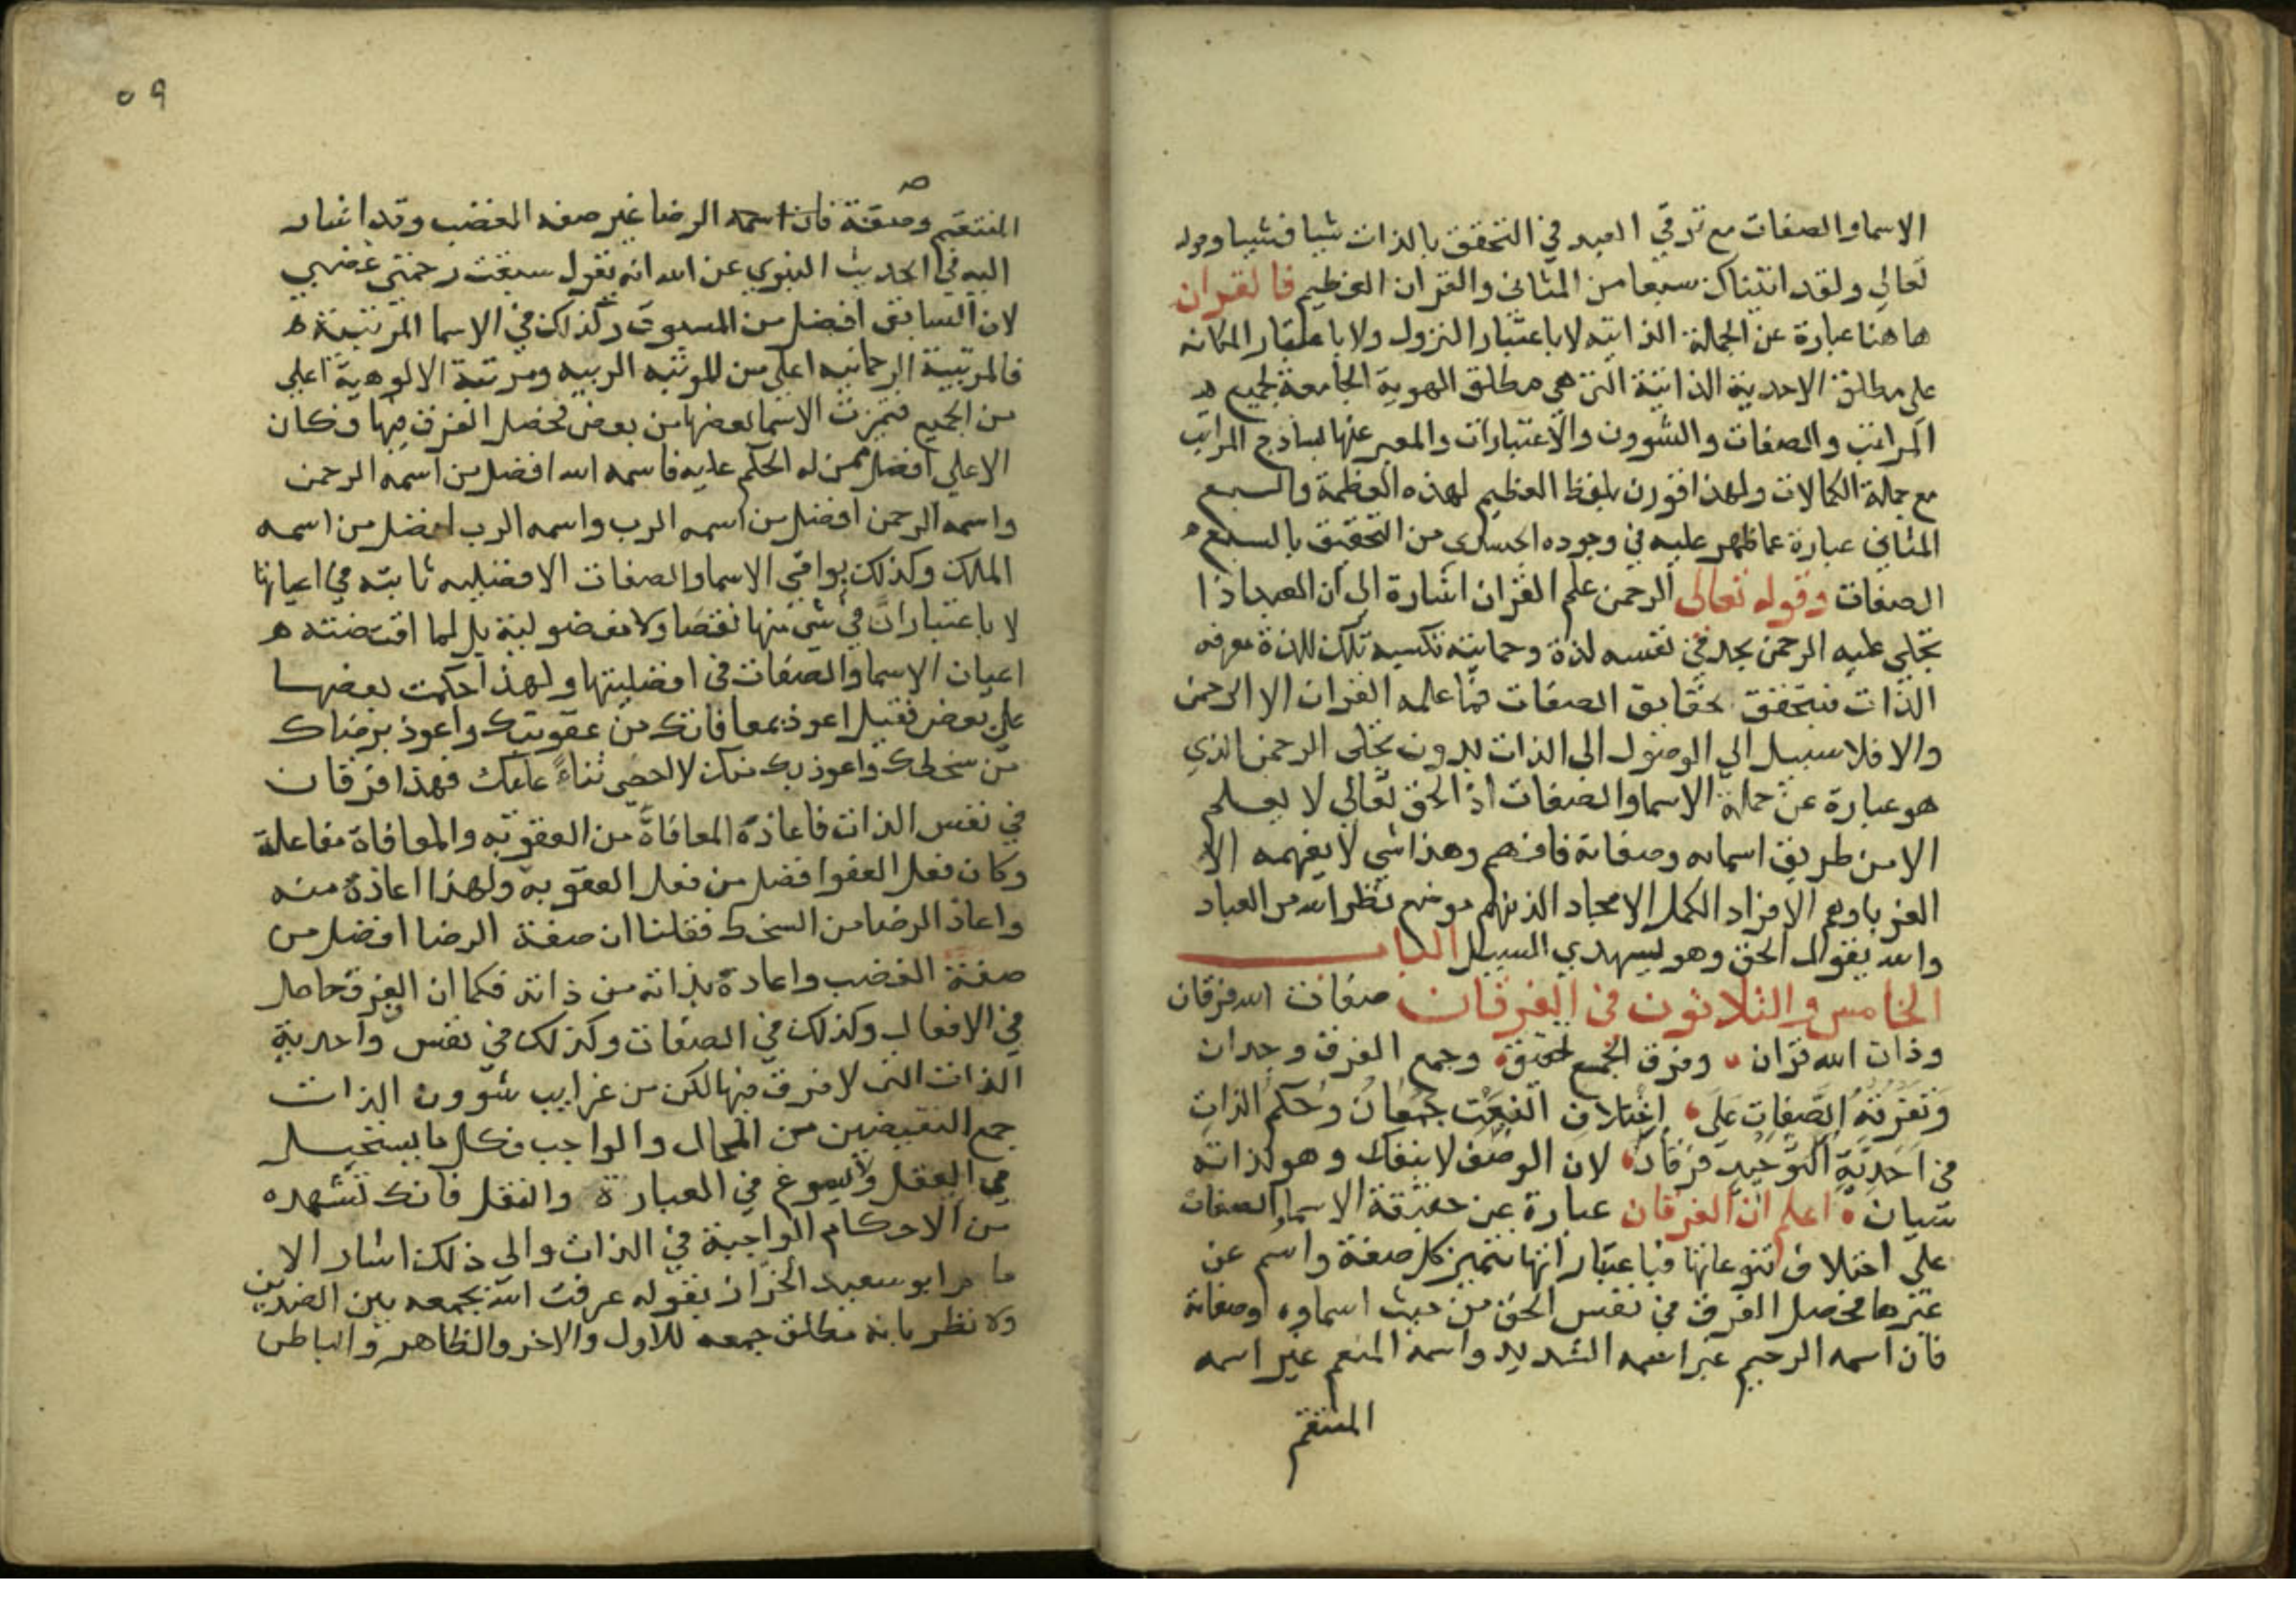 الاسما والصفات مع ترقي العبد في التحقق بالذات شيا فشيا وقوله
تعالي ولقد اتيناك سبعا من المثاني والقران العظيم فالقران
هاهنا عبارة عن الجملة الذاتيه لا باعتبار النزول ولا باعتبار المكانه
علي مطلق الاحدية الذاتية التي هي مطلق الهوية الجامعة لجميع
المراتب والصفات والشوون والاعتبارات والمعبر عنها بساذج المراتب
مع جملة الكمالات ولهذا اقترن بلفظ العظيم لهذه العظمة والسبع
المثاني عبارة عما ظهر عليه في وجوده الجسدي من التحقيق بالسبع
الصفات وقوله تعالى الرحمن علم القران اشارة الي ان العبد اذا
تجلي عليه الرحمن يجد في نفسه لذة رحمانية تكسبه تلك اللذة معرفه
الذات فيتحقق بحقايق الصفات فما علمه القران الا الرحمن
والا فلا سبيل الي الوصول الى الذات بدون تجلى الرحمن الذي
هو عبارة عن جملة الاسما والصفات اذ الحق تعالي لا يعلم
الا من طريق اسمايه وصفاته فافهم وهذا شي لا يفهمه الا
الغربا وهم الافراد الكمل الامجاد الذينهم موضع نظر الله من العباد
والله يقول الحق وهو يهدي السبيل الباب
الخامس والثلاثون في الفرقان صفات الله فرقان
وذات الله قران وفرق الجمع تحقيق وجمع الفرق وجدان
وَتفرقةُ الصّفاتِ عَلَى اِختلاف النعت جمعانُ وحكم الذاتِ
في اَحَدِيَّةِ التَّوحيدِ فرقان لان الوصف لا ينفك وهو لذاته
شيان اعلم ان الفرقان عبارة عن حقيقة الاسما والصفات
علي اختلاف تنوعاتها فباعتباراتها تتميز كل صفة واسم عن
غيرها فحصل الفرق في نفس الحق من حيث اسماوه وصفاته
فان اسمه الرحيم غير اسمه الشديد واسمه المنعم غير اسمه
المنتقم
٥٩
المنتقم وصفة الرضا غير صفه الغضب وقد اشار
اليه في الحديث النبوي عن الله انه يقول سبقت رحمتي غضبي
لان السابق افضل من المسبوق وكذلك في الاسما المرتبية
فالمرتبية الرحمانيه اعلي من المرتبه الربيه ومرتبة الالوهية اعلي
من الجميع فتميزت الاسما بعضها من بعض فحصل الفرق فيها وكان
الاعلي افضل ممن له الحكم عليه فاسمه الله افضل من اسمه الرحمن
واسمه الرحمن افضل من اسمه الرب واسمه الرب افضل من اسمه
الملك وكذلك بواقي الاسما والصفات الافضليه ثابته في اعيانها
لا باعتبار ان في شي منها نقصا ولا مفضولية بل لما اقتضته
اعيان الاسما والصفات في افضليتها ولهذا حكمت بعضها
علي بعض فقيل اعوذ بمعافاتك من عقوبتك واعوذ برضاك
من سخطك واعوذ بك منك لا احصي ثناءً عليك فهذا فرقان
في نفس الذات فاعاذة المعافاة من العقوبه والمعافاة مفاعلة
وكان فعل العفو افضل من فعل العقوبة ولهذا اعاذة منه
واعاذ الرضا من السخط فقلنا ان صفة الرضا افضل من
صفة الغضب واعاذة بذاته من ذاته فكما ان الفرق حاصل
في الافعال وكذلك في الصفات وكذلك في نفس واحدية
الذات التي لا فرق فيها لكن من غرايب شوون الذات
جمع النقيضين من المحال والواجب فكل ما يستحيل
في العقل ولا يسوغ في العبارة والنقل فانك تشهده
من الاحكام الواجبة في الذات والي ذلك اشار الا
مام ابو سعيد الخراز بقوله عرفت الله بجمعه بين الضدين
ولا تظن بانه مطلق جمعه للاول والاخر والظاهر والباطن